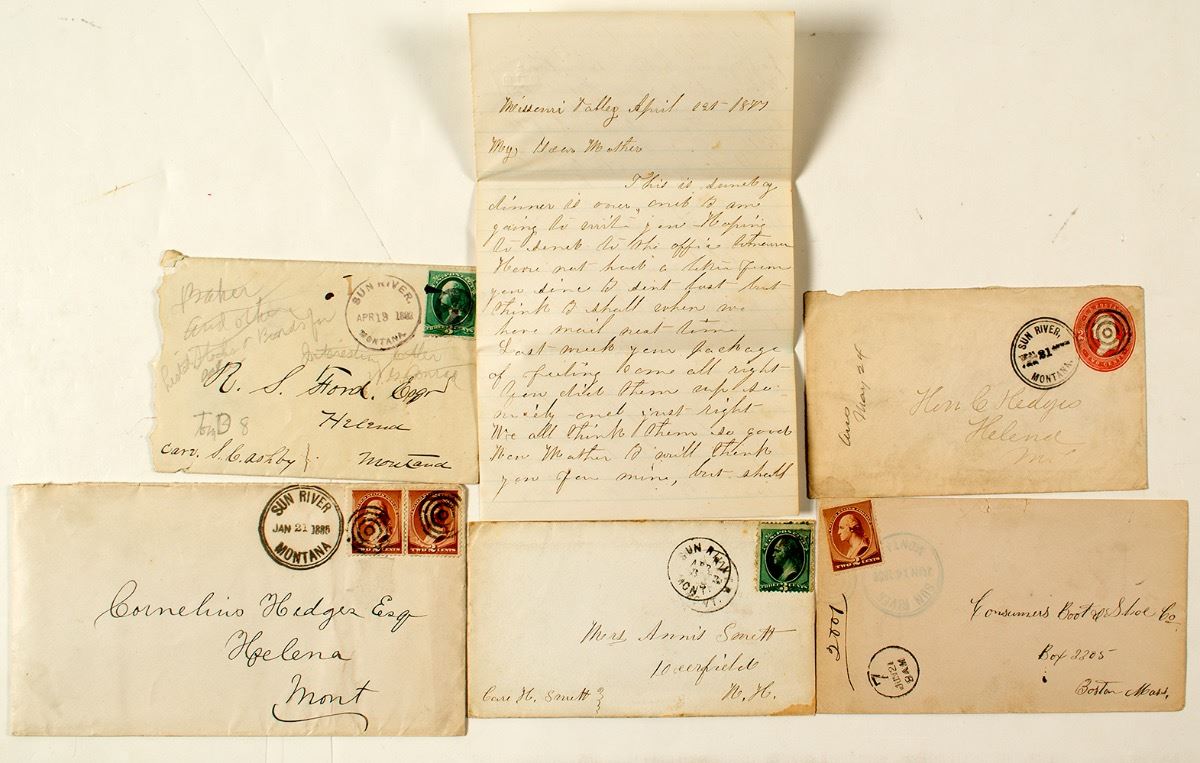 Missouri Valley April 1st 188
My Dear Mother
This is Sunday
dinner is over, and I am
going to write you Hoping
to send to the office tomorrow
Have not had a letter from
you since I sent last but
think I shall when we
have mail next time
Last week your package
of came all right
You did them up so
nicely and just right
We all think them so good
Mother I will thank
you for mine, but shall
Baker
and other
Interesting letter
SUN RIVER,
APR 19 188
MONTANA.
THREE CENTS
R. S. Ford. Esqr
Helena
Montana
Care. S. C. Ashby
SUN RIVER,
21
MONTANA.
Ans
May 24
Hon C Hedges
Helena
SUN RIVER
JAN 21 1885
MONTANA
TWO CENTS
TWO CENTS
Cornelius Hedges Esq
Helena
Mont
SUN RIVER
APR
MONT.
THREE CENTS
Mrs Annis Smith
Deerfield
N. H.
Care H. Smith
TWO CENTS
SUN RIVER
JUN 14
MONTANA
JUN 21
8AM
7
Consumers Boot & Shoe Co
Box 2205
Boston Mass.